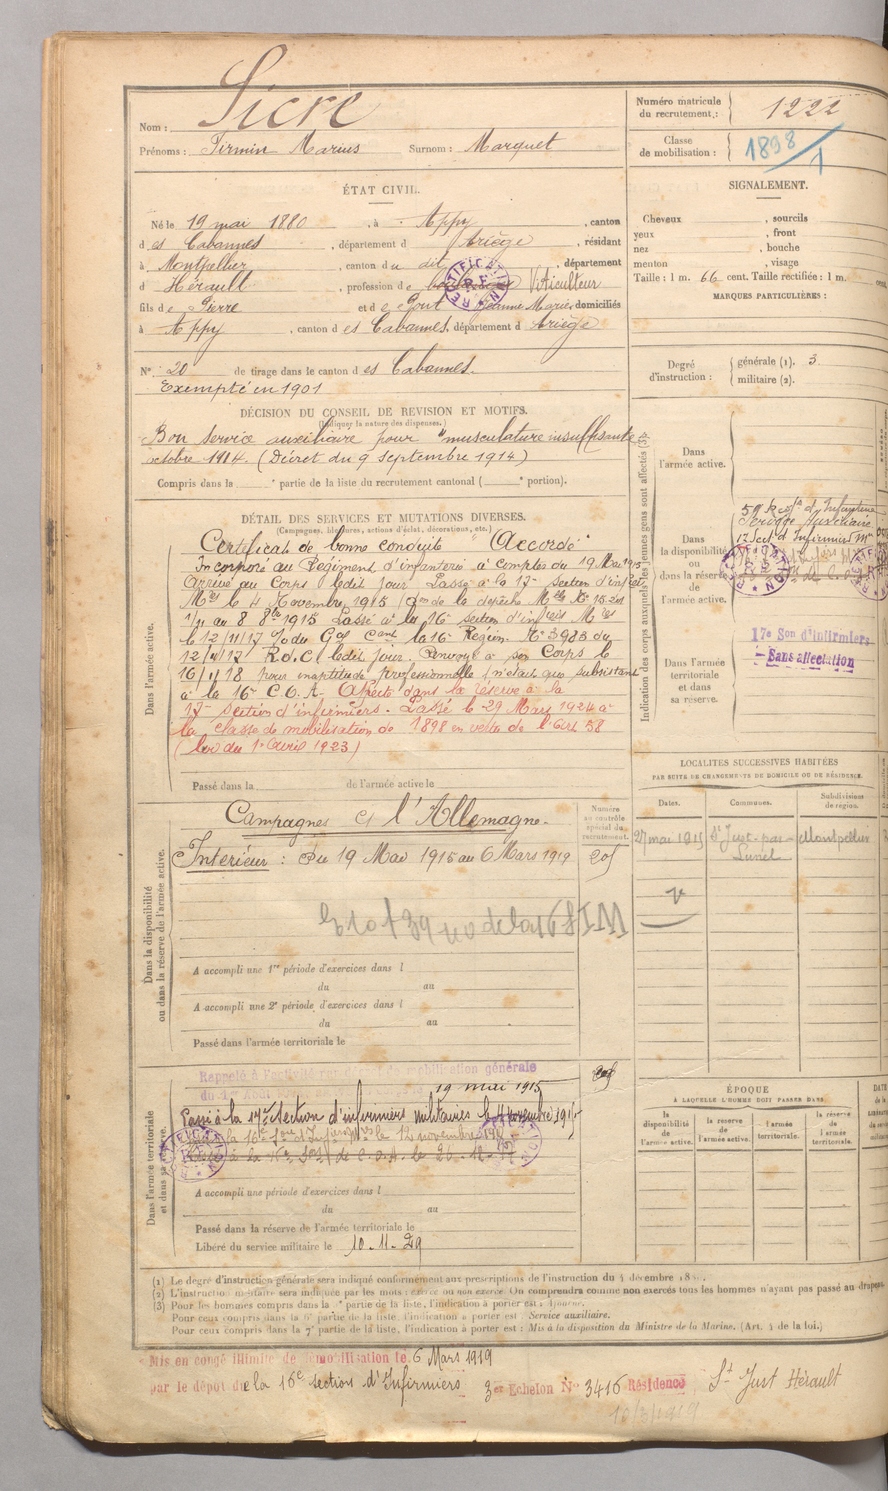 Nom : Sicre
Prénoms : Firmin Marius Surnom : Marquet
Numéro matricule du recrutement : 1222
Classe de mobilisation : 1898/1
ÉTAT CIVIL.
Né le 19 mai 1880, à Appy, canton
des Cabannes, département d Ariège, résidant
à Montpellier, canton du dit, département
d Hérault, profession de Viticulteur
fils de Pierre et de Jeanne Marie, domiciliés
à Appy, canton des Cabannes, département d Ariège
N° 20 de tirage dans le canton des Cabannes.
Exempté en 1901
SIGNALEMENT.
Cheveux , sourcils
yeux , front
nez , bouche
menton , visage
Taille : 1 m. 66 cent. Taille rectifiée : 1 m. cent.
MARQUES PARTICULIÈRES :
Degré d'instruction : générale (1). 3
militaire (2).
DÉCISION DU CONSEIL DE REVISION ET MOTIFS.
(Indiquer la nature des dispenses.)
Bon service auxiliaire pour "musculature insuffisante
octobre 1914. (Décret du 9 septembre 1914)
Compris dans la ° partie de la liste du recrutement cantonal ( ° portion).
DÉTAIL DES SERVICES ET MUTATIONS DIVERSES.
(Campagnes, blessures, actions d'éclat, décorations, etc.)
Certificat de bonne conduite "Accordé"
Dans l'armée active.
Incorporé au Régiment d'infanterie à compter du 19 Mai 1915
Arrivé au Corps ledit jour. Passé à la 17e section d'infirm
Mres le 4 Novembre 1915
Passé à la 16e section d'
le 12/11/17 la 16e Région. N° 3983 du
12/11/17 R.d.C. ledit jour. Renvoyé à son Corps le
16/1/18 pour inaptitude professionnelle (n'était que subsistant
à la 16e C O A. Affecté dans la réserve à la
17e section d'infirmiers. Passé le 29 Mars 1924 à
la classe de mobilisation de 1898 en vertu de l'Art 58
(loi du 1er Avril 1923)
Passé dans la de l'armée active le
Indication des corps auxquels les jeunes gens sont affectés (3).
Dans l'armée active.
Dans la disponibilité ou dans la réserve de l'armée active.
d'Infanterie
Service Auxiliaire
17 Sect. d'Infirmiers Mres
Dans l'armée territoriale et dans sa réserve.
17e Son d'Infirmiers
Sans affectation
LOCALITES SUCCESSIVES HABITÉES
PAR SUITE DE CHANGEMENTS DE DOMICILE OU DE RÉSIDENCE.
Dates. Communes. Subdivisions de région.
27 mai 1915 St Just-par-Lunel Montpellier
Dans la disponibilité ou dans la réserve de l'armée active.
Numéro au contrôle spécial du recrutement.
Campagnes c/ l'Allemagne.
Intérieur : Du 19 Mai 1915 au 6 Mars 1919
A accompli une 1re période d'exercices dans l
du au
A accompli une 2e période d'exercices dans l
du au
Passé dans l'armée territoriale le
Dans l'armée territoriale et dans sa réserve.
Rappelé à l'activité mobilisation générale
du 1er Août
19 mai 1915
Passé à la 17e Section d'infirmiers militaires le 4 novembre 1915
le 12 novembre
A accompli une période d'exercices dans l
du au
Passé dans la réserve de l'armée territoriale le
Libéré du service militaire le 10.11.29
ÉPOQUE
À LAQUELLE L'HOMME DOIT PASSER DANS
la disponibilité de l'armée active.
la réserve de l'armée active.
l'armée territoriale.
la réserve de l'armée territoriale.
(1) Le degré d'instruction générale sera indiqué conformément aux prescriptions de l'instruction du 4 décembre
(2) L'instruction militaire sera indiquée par les mots : exercé ou non exercé. On comprendra comme non exercés tous les hommes n'ayant pas passé au drapeau
(3) Pour les hommes compris dans la partie de la liste, l'indication à porter est : Ajourné.
Pour ceux compris dans la 6e partie de la liste, l'indication à porter est : Service auxiliaire.
Pour ceux compris dans la 7e partie de la liste, l'indication à porter est : Mis à la disposition du Ministre de la Marine. (Art. 4 de la loi.)
Mis en congé illimité de démobilisation le 6 Mars 1919
par le dépôt de la 16e section d'Infirmiers 3e Echelon N° 3416 Résidence St Just Hérault
10/3/1919